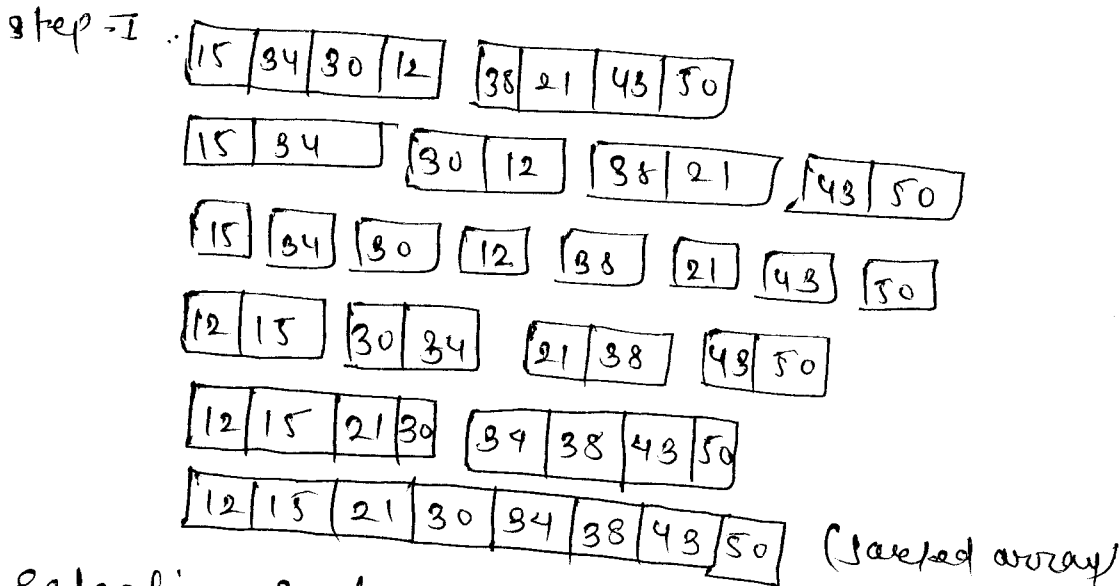 step-I :
15 34 30 12 38 21 43 50
15 34 30 12 38 21 43 50
15 34 30 12 38 21 43 50
12 15 30 34 21 38 43 50
12 15 21 30 34 38 43 50
12 15 21 30 34 38 43 50 array